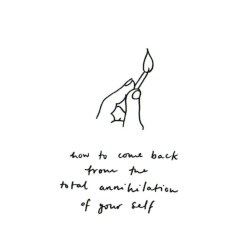 how to come back
from the
total annihilation
of your self